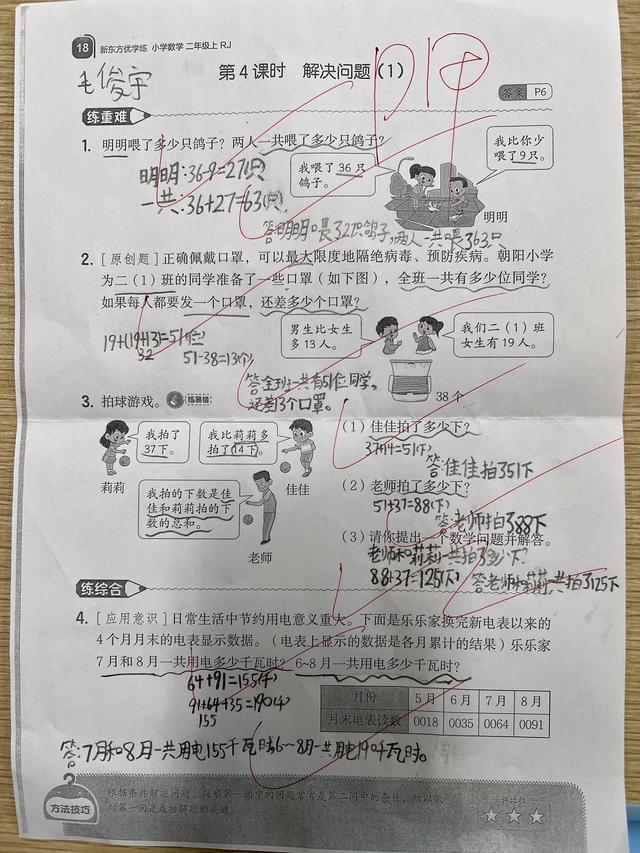 18 新东方优学练 小学数学 二年级上 RJ
毛俊宇
第4课时 解决问题(1)
答案 P6
练重难
1. 明明喂了多少只鸽子?两人一共喂了多少只鸽子?
我比你少喂了9只。
我喂了36只鸽子。
明明
明明:36-9=27(只)
一共:36+27=63(只)
答:明明喂了27只鸽子,两人一共喂了63只
2. [原创题]正确佩戴口罩,可以最大限度地隔绝病毒、预防疾病。朝阳小学
为二(1)班的同学准备了一些口罩(如下图),全班一共有多少位同学?
如果每人都要发一个口罩,还差多少个口罩?
男生比女生多13人。
我们二(1)班女生有19人。
38个
19+(19+13)=51(位)
32
51-38=13(个)
答:全班一共有51位同学,
还差13个口罩。
3. 拍球游戏。
我拍了37下。
我比莉莉多拍了14下。
莉莉
佳佳
我拍的下数是佳佳和莉莉拍的下数的总和。
老师
(1)佳佳拍了多少下?
37+14=51(下)
答:佳佳拍了51下
(2)老师拍了多少下?
51+37=88(下)
答:老师拍了88下
(3)请你提出一个数学问题并解答。
老师和莉莉一共拍了多少下?
88+37=125(下)
答:老师和莉莉一共拍了125下
练综合
4. [应用意识]日常生活中节约用电意义重大。下面是乐乐家换完新电表以来的
4个月月末的电表显示数据。(电表上显示的数据是各月累计的结果)乐乐家
7月和8月一共用电多少千瓦时?6~8月一共用电多少千瓦时?
64+91=155(千)
91+64+35=190(千)
155
月份 5月 6月 7月 8月
月末电表读数 0018 0035 0064 0091
答:7月和8月一共用电155千瓦时,6~8月一共用电190千瓦时。
方法技巧
根据条件解决问题,观察第一问中的问题常常是第二问中的条件,所以做
对第一问是成功解题的关键。
评论栏